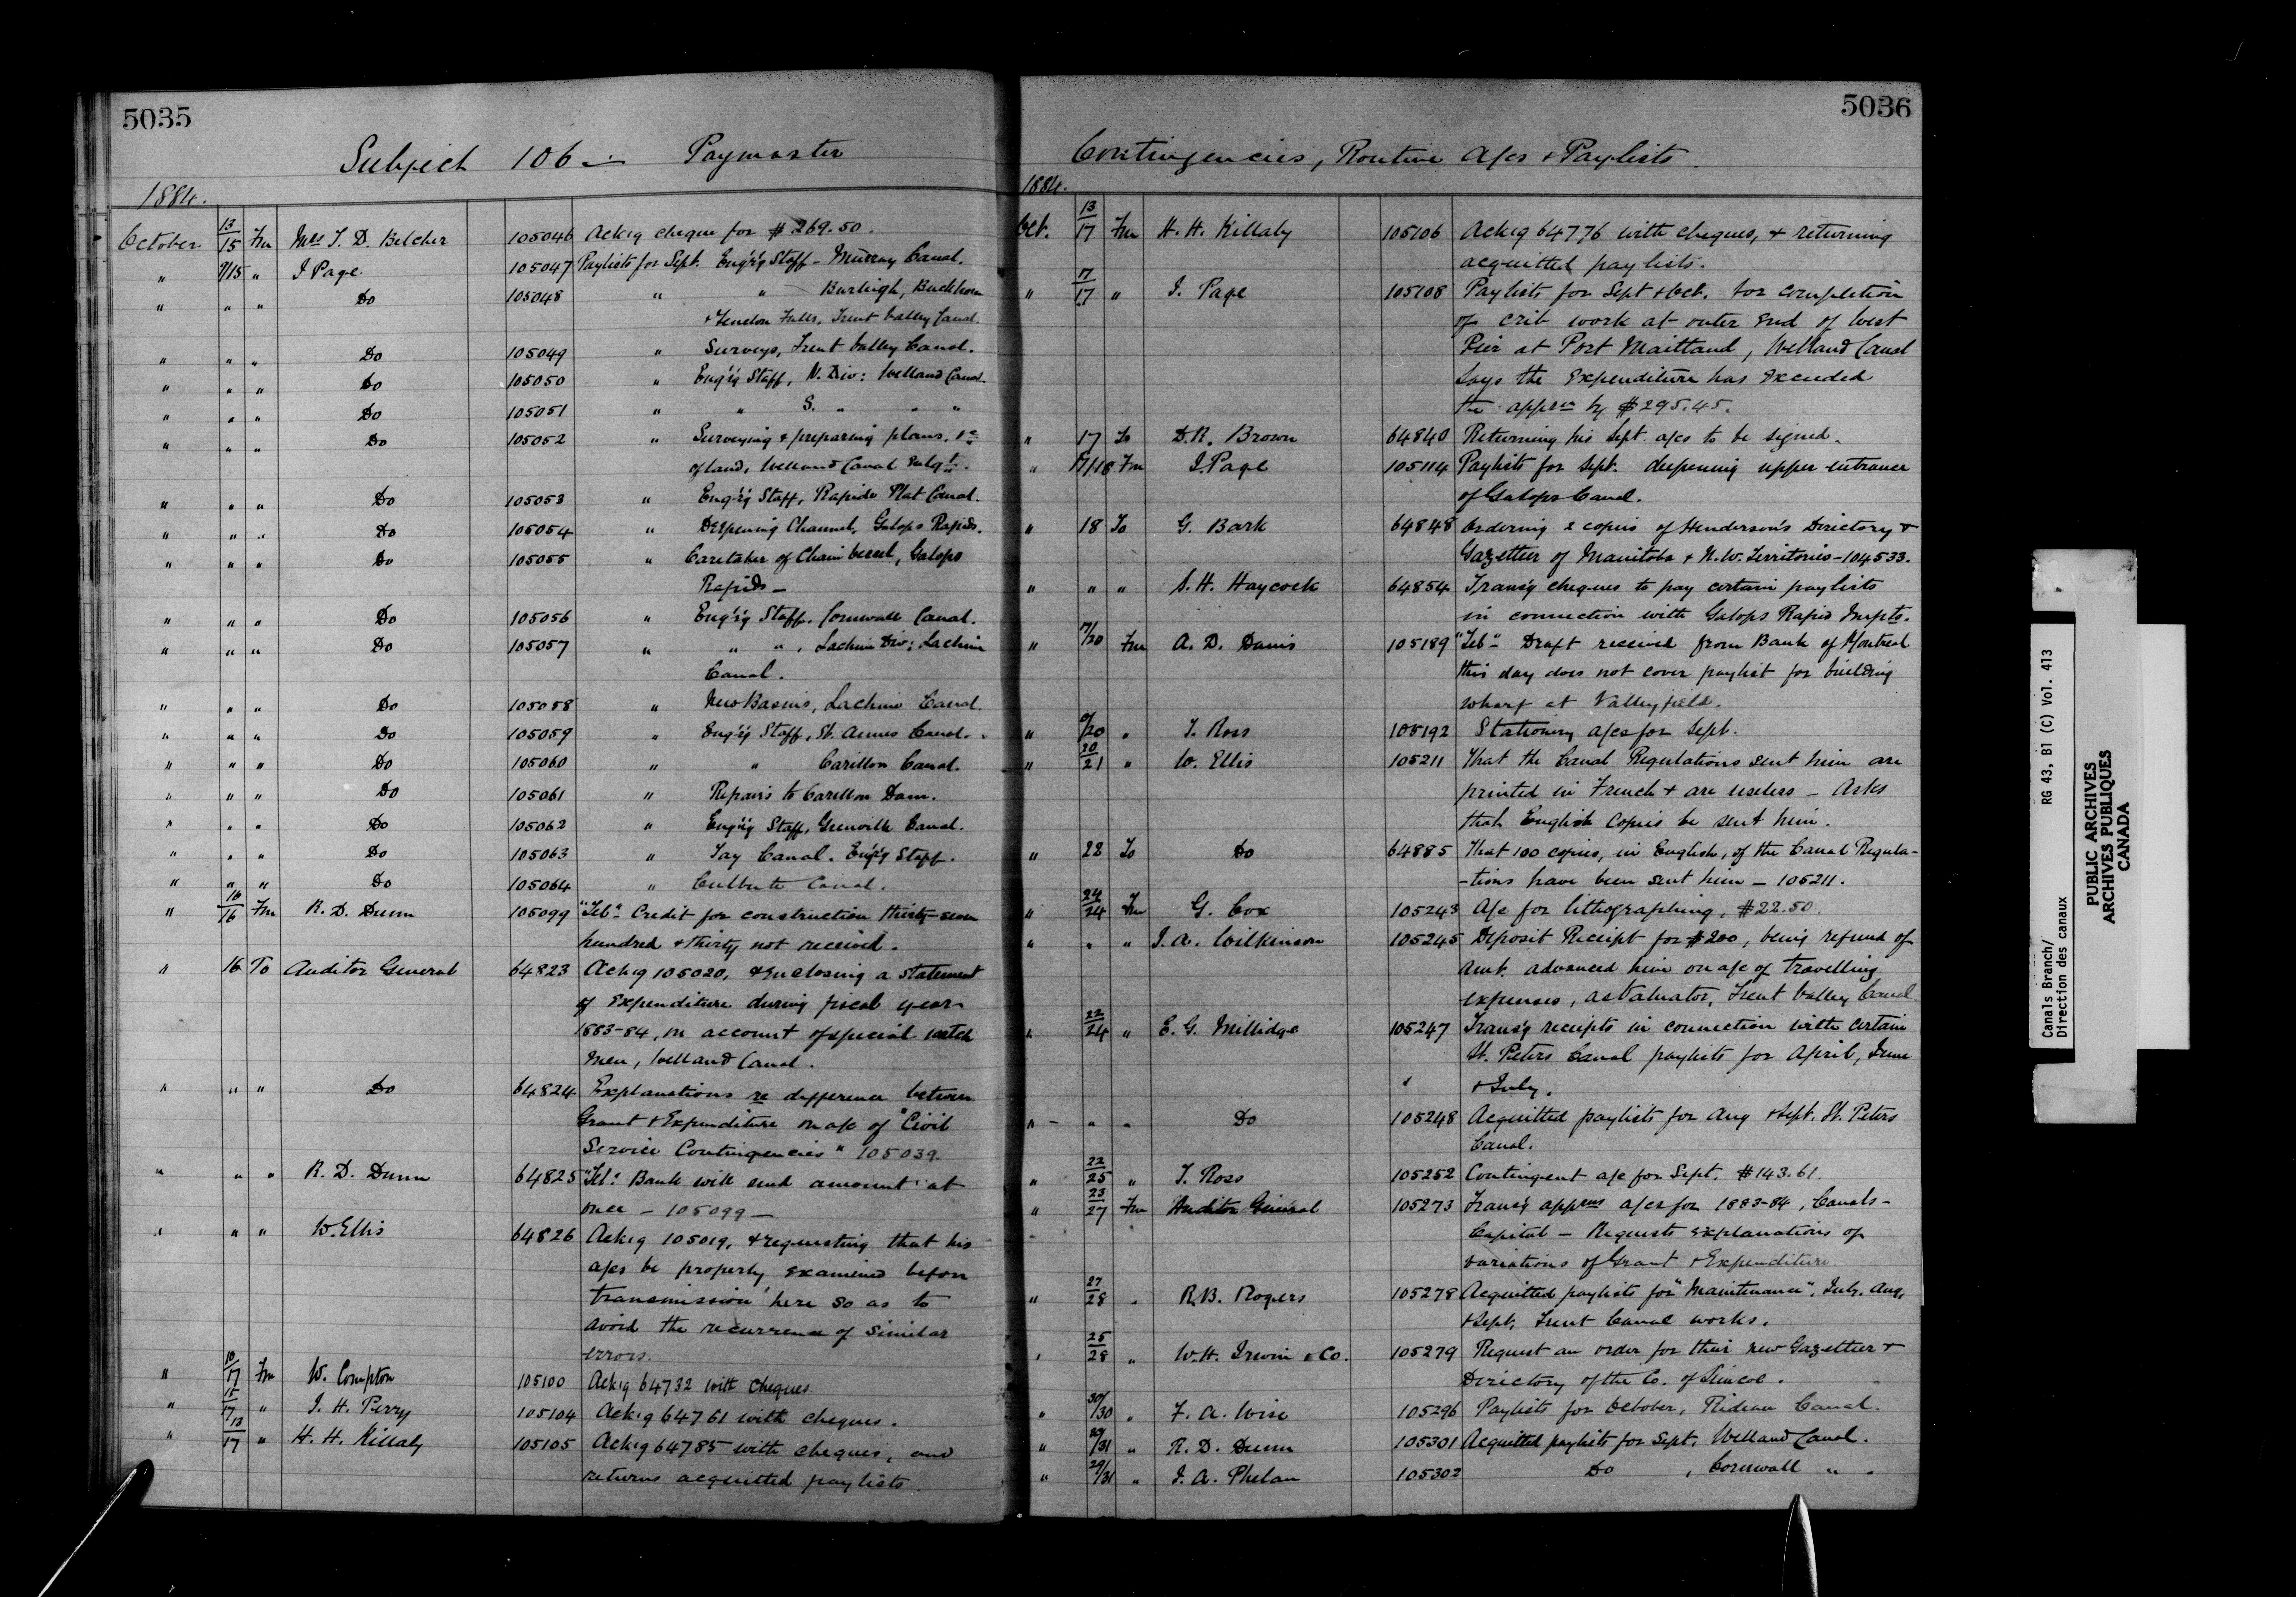 5035
Subject 106 — Paymaster
1884.
October 13/15 Fm Mrs T. D. Belcher 105046 Ackig cheque for $269.50.
" 9/15 " J Page 105047 Paylists for Sept. Eng'r'g Staff - Murray Canal.
" " " Do 105048 " " Burleigh, Buckhorn
& Fenelon Falls, Trent Valley Canal.
" " " Do 105049 " Surveys, Trent Valley Canal.
" " " Do 105050 " Eng'r'g Staff, N. Div: Welland Canal.
" " " Do 105051 " " S. " " "
" " " Do 105052 " Surveying & preparing plans, &c
of land, Welland Canal Enlgt.
" " " Do 105053 " Eng'r'g Staff, Rapide Plat Canal.
" " " Do 105054 " Deepening Channel, Galops Rapids.
" " " Do 105055 " Caretaker of Chain vessel, Galops
Rapids —
" " " Do 105056 " Eng'r'g Staff, Cornwall Canal.
" " " Do 105057 " " ", Lachine Div: Lachine
Canal.
" " " Do 105058 " New Basins, Lachine Canal.
" " " Do 105059 " Eng'r'g Staff, St. Annes Canal.
" " " Do 105060 " " Carillon Canal.
" " " Do 105061 " Repairs to Carillon Dam.
" " " Do 105062 " Eng'r'g Staff, Grenville Canal.
" " " Do 105063 " Tay Canal. Eng'r'g Staff.
" " " Do 105064 " Culbute Canal.
" 16/16 Fm R. D. Dunn 105099 "Tel." Credit for construction thirty-seven
hundred & thirty not received.
" 16 To Auditor General 64823 Ackig 105020, & enclosing a statement
of Expenditure during fiscal year
1883-84, on account of special watch
men, Welland Canal.
" " " Do 64824 Explanations re difference between
Grant & Expenditure on a/c of "Civil
Service Contingencies" 105039.
" " " R. D. Dunn 64825 "Tel." Bank will send amount at
once — 105099 —
" " " W. Ellis 64826 Ackig 105019, & requesting that his
a/cs be properly examined before
transmission here so as to
avoid the recurrence of similar
errors.
" 10/17 Fm W. Compton 105100 Ackig 64732 with cheques.
" 15/17 " J. H. Perry 105104 Ackig 64761 with cheques.
" 13/17 " H. H. Killaly 105105 Ackig 64785 with cheques, and
returns acquitted paylists.
5036
Contingencies, Routine A/cs & Paylists
1884.
Oct. 13/17 Fm H. H. Killaly 105106 Ackig 64776 with cheques, & returning
acquitted paylists.
" 17/17 " J. Page 105108 Paylists for Sept & Oct. for completion
of crib work at outer end of West
Pier at Port Maitland, Welland Canal
says the Expenditure has exceeded
the apprn by $295.45.
" 17 To D. R. Brown 64840 Returning his Sept. a/cs to be signed.
" 17/18 Fm J. Page 105114 Paylists for Sept. deepening upper entrance
of Galops Canal.
" 18 To G. Bark 64848 Ordering 2 copies of Henderson's Directory &
Gazetteer of Manitoba & N.W. Territories - 104533.
" " " S. H. Haycock 64854 Trans'g cheques to pay certain paylists
in connection with Galops Rapid Impts.
" 17/20 Fm A. D. Danis 105189 "Tel." Draft received from Bank of Montreal
this day does not cover paylist for building
wharf at Valleyfield.
" /20 " T. Ross 105192 Stationery a/cs for Sept.
" 20/21 " W. Ellis 105211 That the Canal Regulations sent him are
printed in French & are useless — Asks
that English copies be sent him.
" 22 To Do 64885 That 100 copies, in English, of the Canal Regula-
-tions have been sent him — 105211.
" 24/24 Fm G. Cox 105243 A/c for lithographing, $22.50.
" " " J. A. Wilkinson 105245 Deposit Receipt for $200, being refund of
amt. advanced him on a/c of travelling
expenses, as Valuator, Trent Valley Canal
" 22/24 " E. G. Millidge 105247 Trans'g receipts in connection with certain
St. Peters Canal paylists for April, June
& July.
" " " Do 105248 Acquitted paylists for Aug & Sept. St. Peters
Canal.
" 22/25 " T. Ross 105252 Contingent a/c for Sept. $143.61.
" 23/27 Fm Auditor General 105273 Trans'g apprns a/cs for 1883-84, Canals -
Capital — Requests explanations of
variations of Grant & Expenditure.
" 27/28 " R. B. Rogers 105278 Acquitted paylists for "Maintenance", July, Aug,
& Sept, Trent Canal works.
" 25/28 " W. H. Irwin & Co. 105279 Request an order for their new Gazetteer &
Directory of the Co. of Simcoe.
" 30/30 " F. A. Wise 105296 Paylists for October, Rideau Canal.
" 29/31 " R. D. Dunn 105301 Acquitted paylists for Sept, Welland Canal.
" 29/31 " J. A. Phelan 105302 Do , Cornwall " .
Canals Branch/
Direction des canaux
RG 43, B1 (C) Vol. 413
PUBLIC ARCHIVES
ARCHIVES PUBLIQUES
CANADA